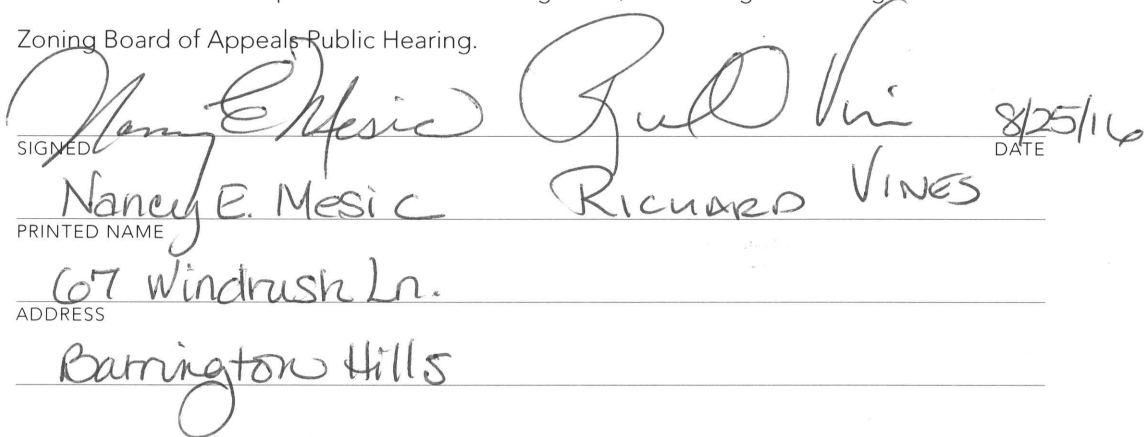 Zoning Board of Appeals Public Hearing.
Nancy E Mesic Richard Vines 8/25/16
SIGNED DATE
Nancy E. Mesic RICHARD VINES
PRINTED NAME
67 Windrush Ln.
ADDRESS
Barrington Hills